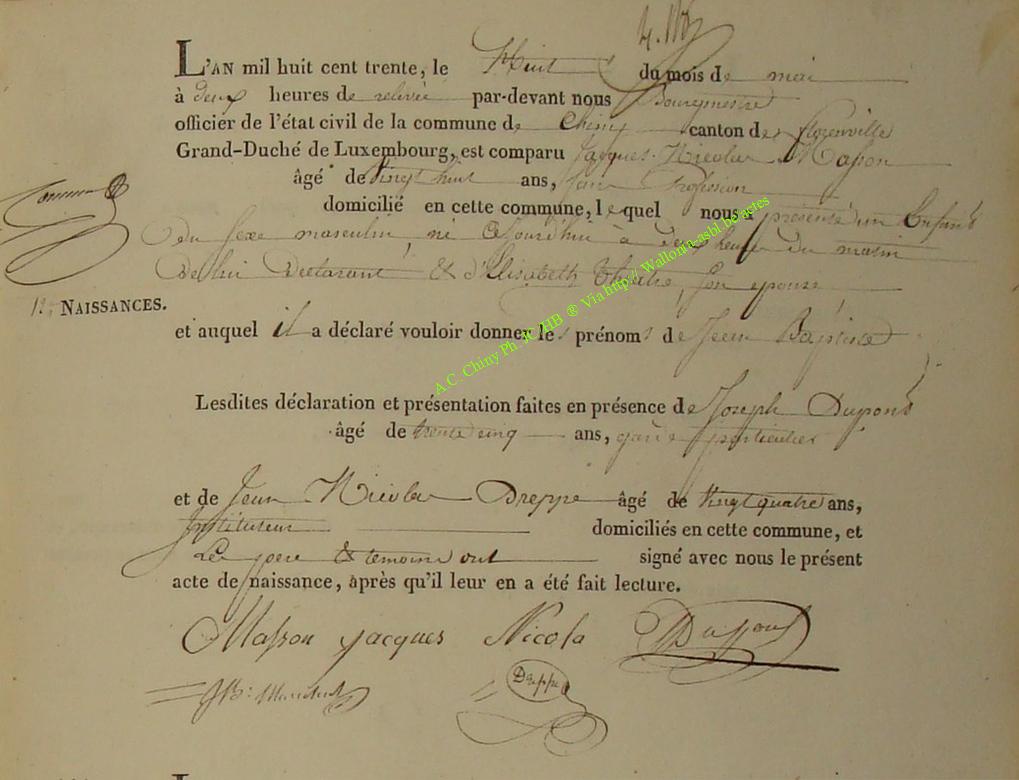 L'AN mil huit cent trente, le Huit du mois de mai
à deux heures de relivée par-devant nous Bourgmestre
officier de l'état civil de la commune de Chiny canton de florenville
Grand-Duché de Luxembourg, est comparu Jacques Nicolas Masson
âgé de vingt huit ans, sans Profession
domicilié en cette commune, lequel nous a présenté un Enfant
du sexe masculin né Cejourd'hui à deux heures du matin
De lui Déclarant & d'Elisabeth son epouse
NAISSANCES.
et auquel il a déclaré vouloir donner les prénoms de Jean Baptiste
A.C. Chiny Ph. JC HB ® Via http// Wallonia-asbl.be/actes
Lesdites déclaration et présentation faites en présence de Joseph Dupont
âgé de trente cinq ans, garde particulier
et de Jean Nicolas Dreppe âgé de vingt quatre ans,
Instituteur domiciliés en cette commune, et
Le pere & temoins ont signé avec nous le présent
acte de naissance, après qu'il leur en a été fait lecture.
Masson jacques Nicola Dupont
Dreppe